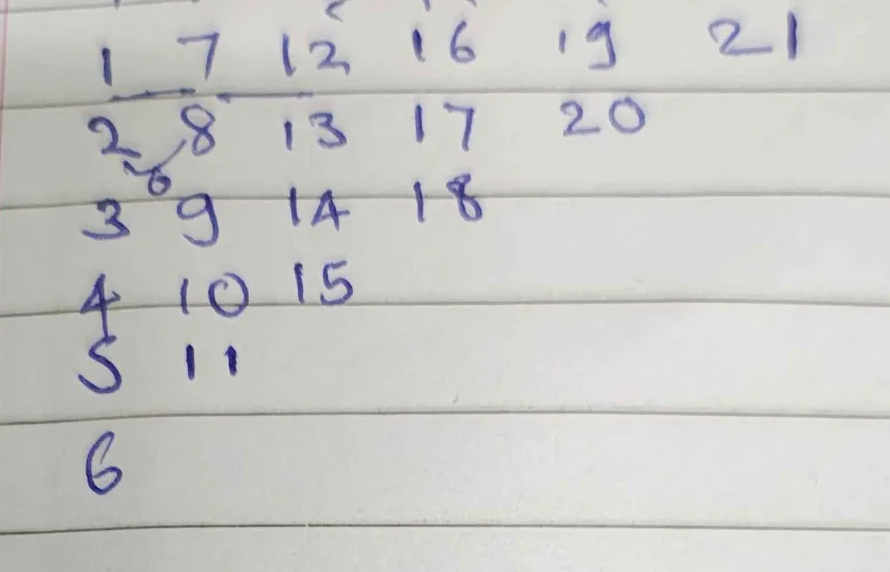 1 7 12 16 19 21
2 8 13 17 20
6
3 9 14 18
4 10 15
5 11
6